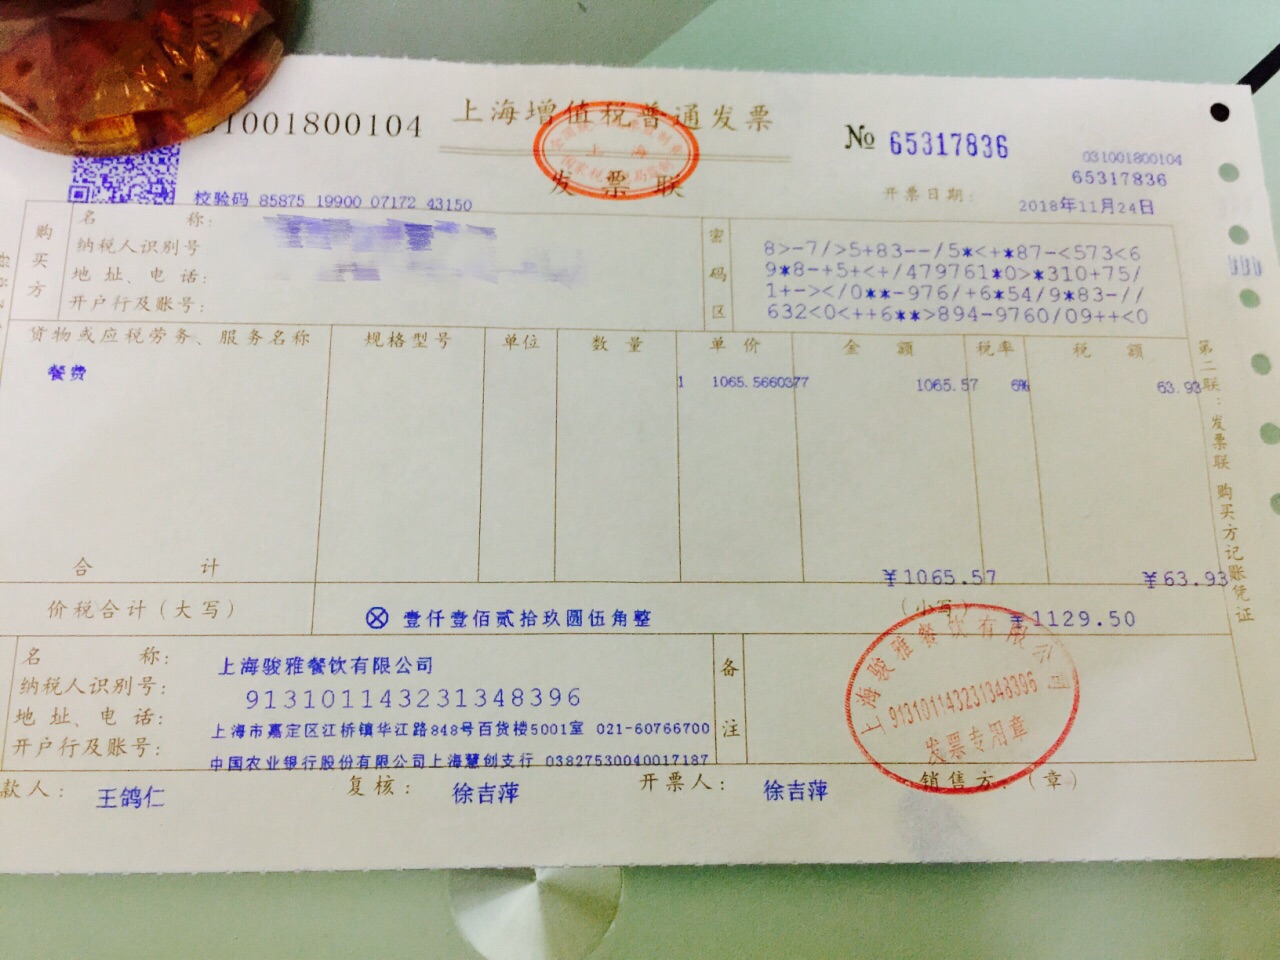 上海增值税普通发票
发票联
上海
031001800104
№ 65317836
031001800104
65317836
校验码 85875 19900 07172 43150
开票日期: 2018年11月24日
购买方
名称:
纳税人识别号
地址、电话:
开户行及账号:
密码区
8>-7/>5+83--/5*<+*87-<573<6
9*8-+5+<+/479761*0>*310+75/
1+-></0**-976/+6*54/9*83-//
632<0<++6**>894-9760/09++<0
货物或应税劳务、服务名称 规格型号 单位 数量 单价 金额 税率 税额
餐费 1 1065.5660377 1065.57 6% 63.93
合计 ¥1065.57 ¥63.93
价税合计(大写) ⊗壹仟壹佰贰拾玖圆伍角整 (小写) ¥1129.50
名称: 上海骏雅餐饮有限公司
纳税人识别号: 913101143231348396
地址、电话: 上海市嘉定区江桥镇华江路848号百货楼5001室 021-60766700
开户行及账号: 中国农业银行股份有限公司上海慧创支行 03827530040017187
备注
上海骏雅餐饮有限公司
913101143231348396
发票专用章
款人: 王鸽仁 复核: 徐吉萍 开票人: 徐吉萍 销售方:(章)
第二联:发票联 购买方记账凭证